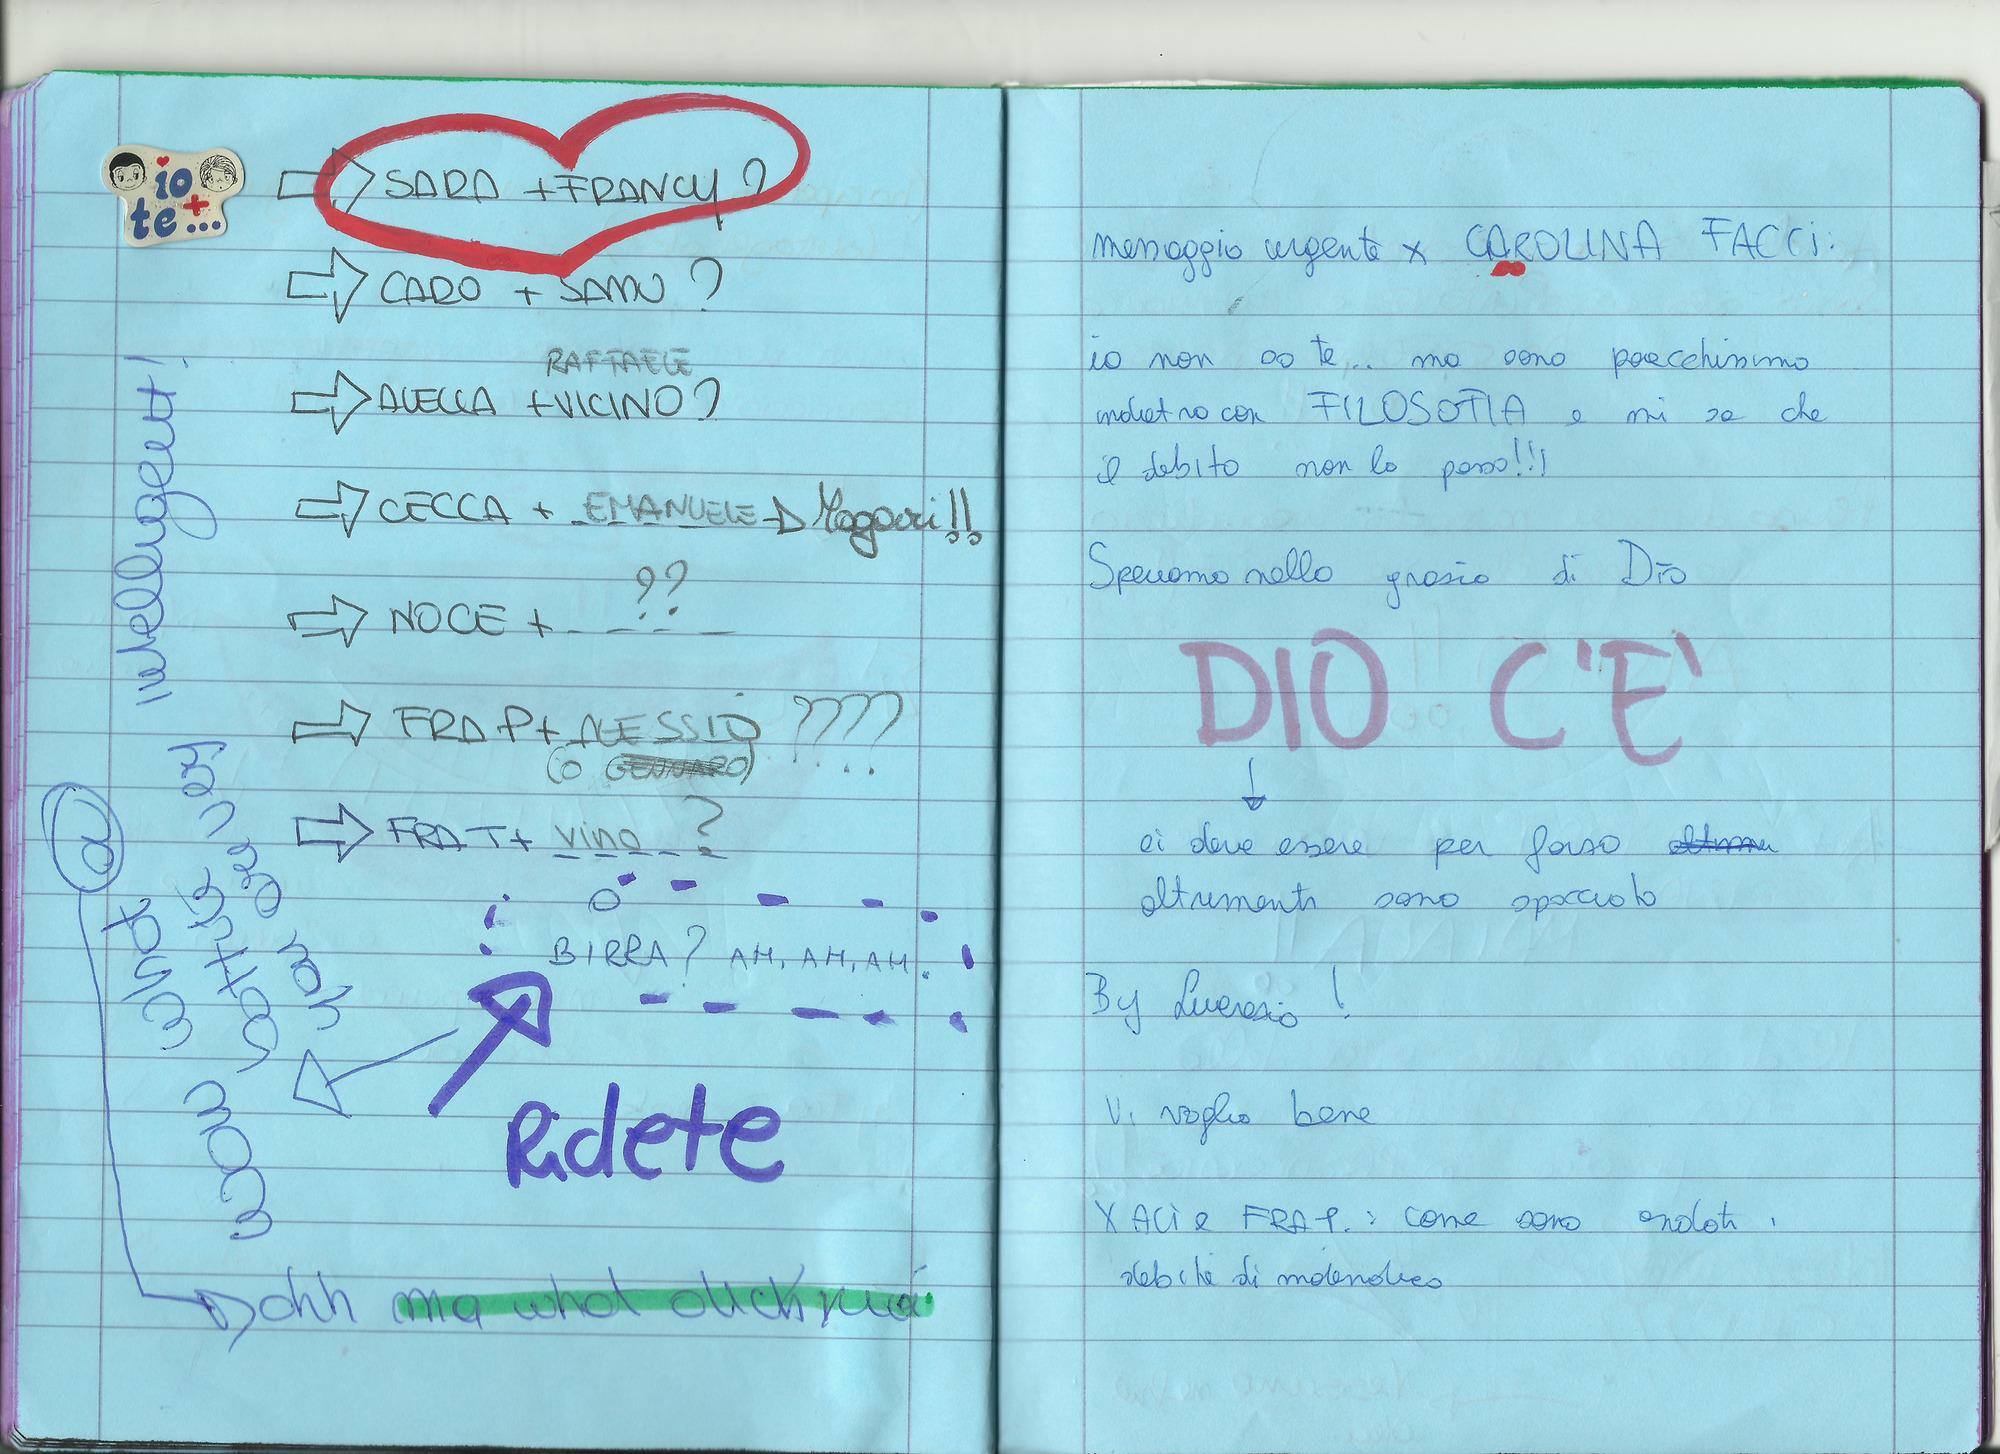 io + te...
SARA + FRANCY ?
CARO + SAMU ?
RAFFAELE
+ VICINO ?
CECCA + EMANUELE → Magari!!
NOCE + _ _ _ _ ??
FRA P + ALESSIO ????
(O GENNARO)
FRA T + vino ?
O
BIRRA? AH, AH, AH.
Ridete
intelligent!
WOW
you are very
a
ohh ma what
messaggio urgente x CAROLINA FACCI:
io non so te... ma sono parecchissimo
indietro con FILOSOFIA e mi sa che
il debito non lo passo!!!
Speriamo nella grazia di Dio
DIO C'E'
ci deve essere per forza
altrimenti sono spacciata
By Lucrezia!
Vi voglio bene
X ALI e FRA P. : come sono andati i
debiti di